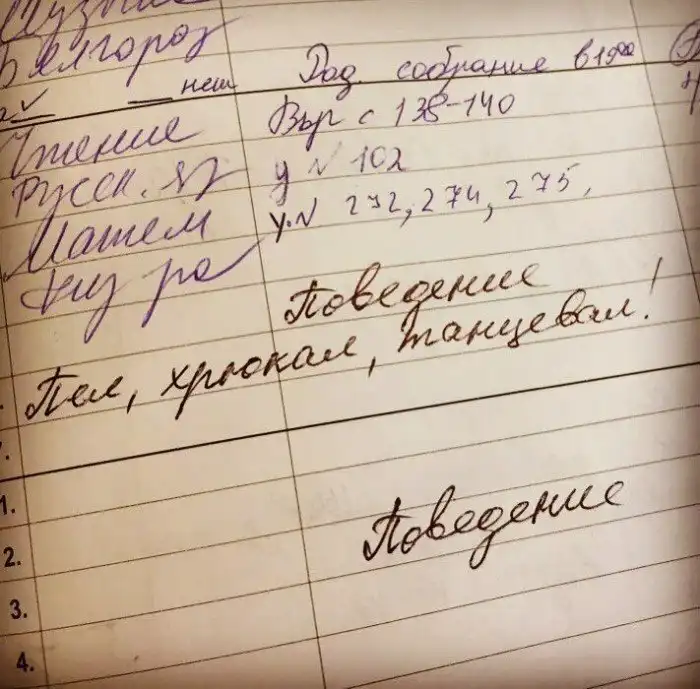 Белгород
неш Род собрание в 19⁰⁰
Чтение Выр с 138-140
Русск. яз у № 102
Матем у. № 272, 274, 275.
Физ ра
Поведение
Пел, хрюкал, танцевал!
Поведение
1.
2.
3.
4.